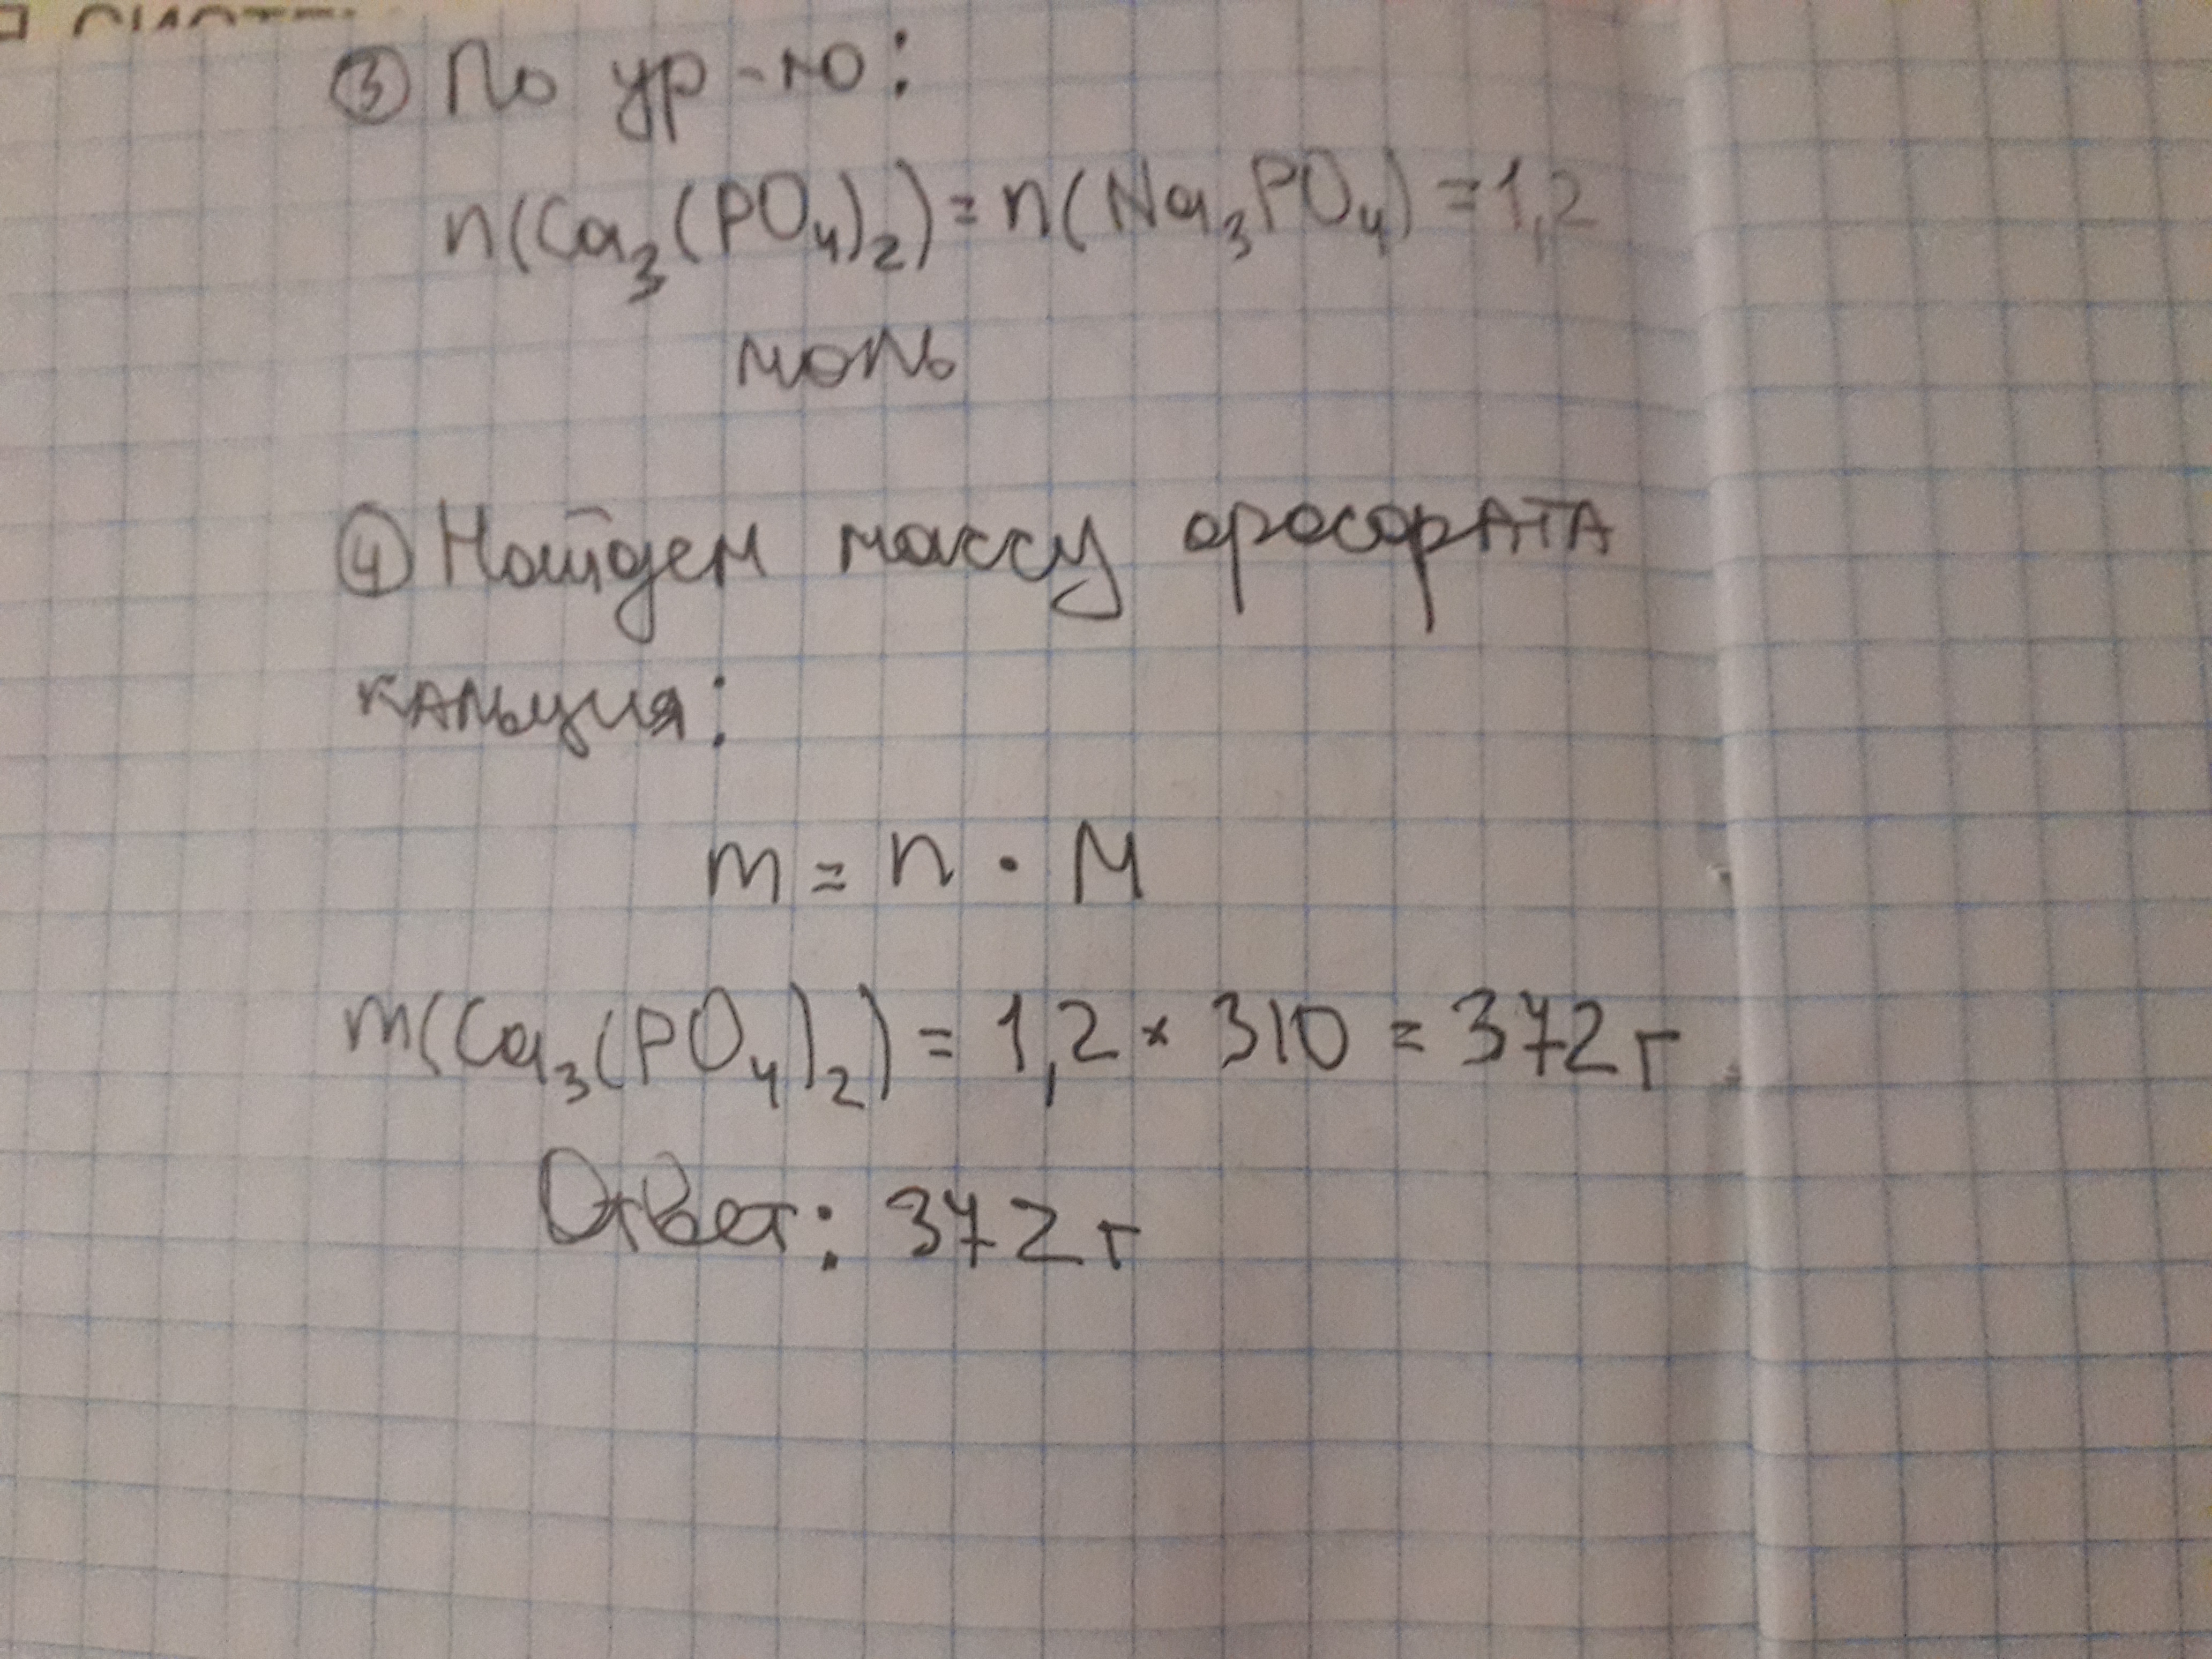 ③ По ур-ю:
n(Ca₃(PO₄)₂) = n(Na₃PO₄) = 1,2
моль
④ Найдем массу фосфАТА
кАльция:
m = n · M
m(Ca₃(PO₄)₂) = 1,2 × 310 = 372 г
Ответ: 372 г